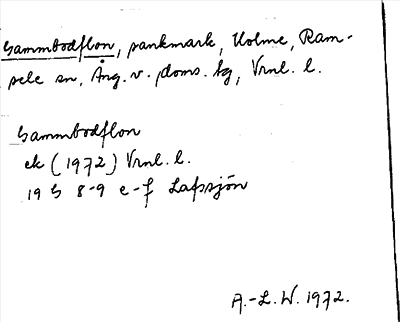 Gammbodflon, sankmark, Holme, Ram-
sele sn, Ång. v. doms. hg, Vrnl. l.
Gammbodflon
ek (1972) Vrnl. l.
19 G 8-9 e-f Lafssjön
A.-L. W. 1972.